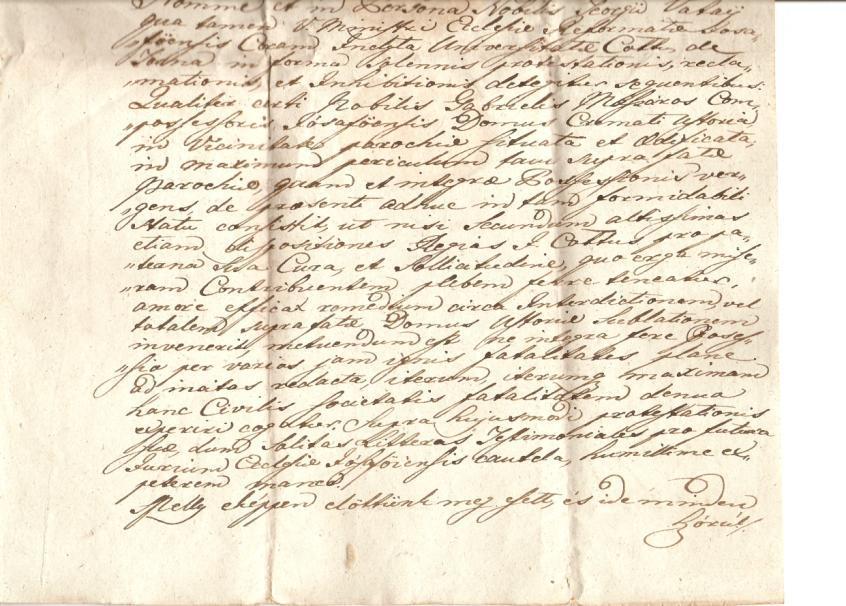 Nomine et in Persona Nobilis Georgii Vatay
qua tamen V. Ministri Ecclesiæ Reformatæ Josa-
„föensis Coram Inclyta Universitate Cottus de
Torna in forma solennis protestationis, recla-
„mationis, et Inhibitionis detegitur sequentibus:
Qualiter certi Nobilis Gabrielis Mészáros Com-
„possessoris Jósafőensis Domus Cremati Ustoria
in Vicinitate parochiæ situata et ædificata,
in maximum periculum tam supra fatæ
Parochiæ, quam et integræ Possessionis ver-
gens, de præsenti adhuc in tam formidabili
statu consistit, ut nisi secundum altissimas
etiam dispositiones Regias I. Cottus pro pa-
„terna sua Cura, et Sollicitudine, quo erga mise-
„ram Contribuentem plebem ferre teneatur,
amore efficax remedium circa Interdictionem vel
totalem supra fatæ Domus Ustoriæ Sublationem
invenerit, metuendum est ne integra fere Posses-
„sio per varios jam ignis fatalitates plane
ad incitas redacta iterum, iterumq maximam
hanc Civilis societatis fatalitatem denuo
experiri cogatur. Supra hujusmodi protestationis
suæ, dum solitas Litteras Testimoniales pro futura
Jurium Ecclesiæ Jósafőensis cautela, humillime ex-
peterem maneo.
Melly eképpen előttünk meg lett, és ide minden